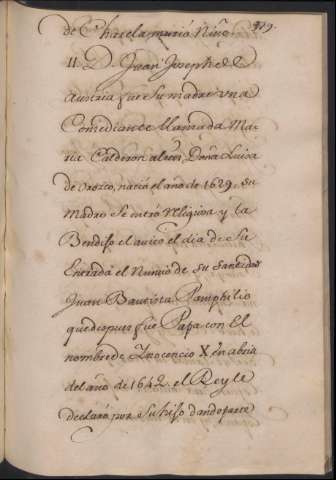 419.
de Charela murió Niño.
11 D. Juan Joseph de
Austria fue su madre una
Comedianta llamada Ma-
ria Calderon Doña Luisa
de Orozco, nació el año de 1629. su
Madre se entró Religiosa y la
Bendiso el avico el dia de su
Entrada el Nuncio de su Santidad
Juan Bautista Pamphilio
que despues fue Papa con El
nombre de Inocencio X en abril
del año de 1642 el Rey le
declaró por su hijo dandoparte